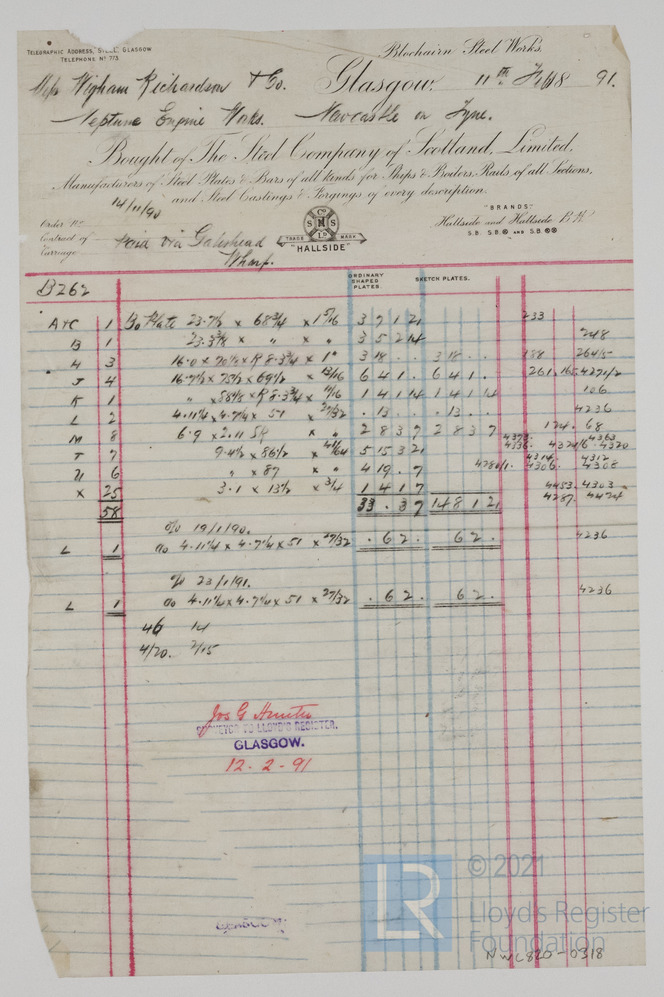 TELEGRAPHIC ADDRESS, STEEL, GLASGOW
TELEPHONE No 773
Blochairn Steel Works.
Glasgow. 11th Feb 1891.
Messrs Wigham Richardson & Co.
Neptune Engine Works. Newcastle on Tyne.
Bought of The Steel Company of Scotland, Limited,
Manufacturers of Steel Plates & Bars of all kinds for Ships & Boilers, Rails of all Sections,
and Steel Castings & Forgings of every description.
Order No 14/11/90
Contract of
Carriage Paid via Gateshead Wharf.
TRADE MARK
"HALLSIDE"
"BRANDS"
Hallside and Hallside B.H.
S.B. S.B. AND S.B.
ORDINARY SHAPED PLATES. SKETCH PLATES.
B262
A+C 1 Bo Plate 23.7½ x 68¾ x 1 5/16 3 7 1 21 233
B 1 x " x " 3 5 2 14 248
H 3 16.0 x 70½ x R 8.3¾ x 1" 3 18 . . 3 18 . . 264/5
J 4 x 75½ x 69½ x 13/16 6 4 1 . 6 4 1 .
K 1 " x R 8.3¾ x 1 4 1 14 1 4 1 14 106
L 2 4.11¼ x 4.7¼ x 51 x 27/32 . 13 . . . 13 . . 4236
M 8 6.9 x 2.11 SR x " 2 8 3 7 2 8 3 7 124. 68
T 7 9.4½ x 86½ x 5 15 3 21
U 6 " x 87 x " 4 19 . 7 4306. 4308
X 25 3.1 x 13½ x 3/4 1 4 1 7 4453. 4303
58 33 . 3 7 14 8 1 21 4287. 4424
o/o 19/1/90.
L 1 Do 4.11¼ x 4.7¼ x 51 x 27/32 . 6 2 . 6 2 . 4236
o/o 23/1/91.
L 1 Do 4.11¼ x 4.7¼ x 51 x 27/32 . 6 2 . 6 2 . 4236
46 14
4/20. 2/15
Jos G Hunter
SURVEYOR TO LLOYD'S REGISTER,
GLASGOW.
12 - 2 - 91
LR
© 2021
Lloyd's Register
Foundation
NWC820-0318